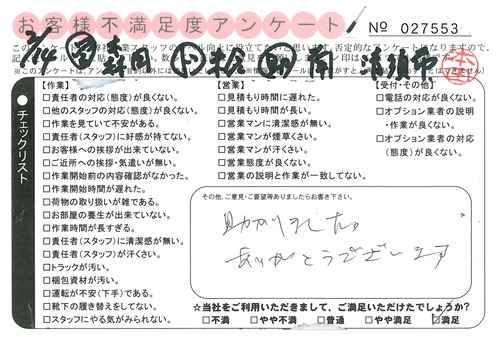 お客様不満足度アンケート
No 027553
この
森岡
小松
前
須東
【作業】
□責任者の対応(態度)が良くない。
□他のスタッフの対応(態度)が良くない。
□作業を見ていて不安がある。
□責任者(スタッフ)に好感が持てない。
□お客様への挨拶が出来ていない。
□ご近所への挨拶・気遣いが無い。
□作業開始前の内容確認がなかった。
□作業開始時間が遅れた。
□荷物の取り扱いが雑である。
□お部屋の養生が出来ていない。
□作業時間が長すぎる。
□責任者(スタッフ)に清潔感が無い。
□責任者(スタッフ)が汗くさい。
□トラックが汚い。
□梱包資材が汚い。
□運転が不安(下手)である。
□靴下の履き替えをしてない。
□スタッフにやる気がみられない。
【営業】
□見積もり時間に遅れた。
□見積もり時間が長い。
□営業マンに清潔感が無い。
□営業マンが煙草くさい。
□営業マンが汗くさい。
□営業態度が良くない。
□営業の説明と作業が一致してない。
【受付・その他】
□電話の対応が良くない。
□オプション業者の説明
・作業が良くない。
□オプション業者の対応
(態度)が良くない。
チェックリスト
その他、ご意見・ご要望等ありましたらお書き下さい。
助かりました。
ありがとうございます
☆当社をご利用いただきまして、ご満足いただけたでしょうか?
□不満 □やや不満 □普通 □やや満足 □満足